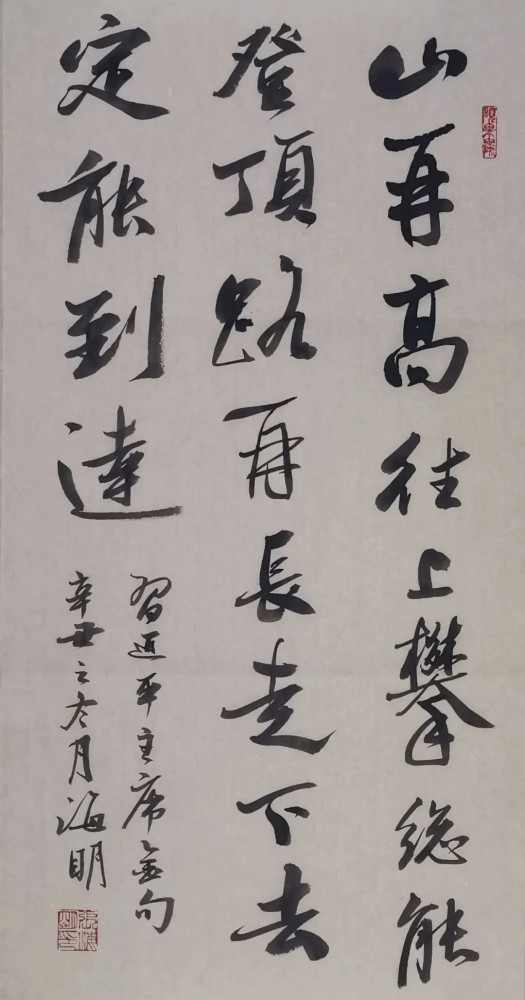 山再高往上攀總能
登頂路再長走下去
定能到達
習近平主席金句
辛丑之冬月海明